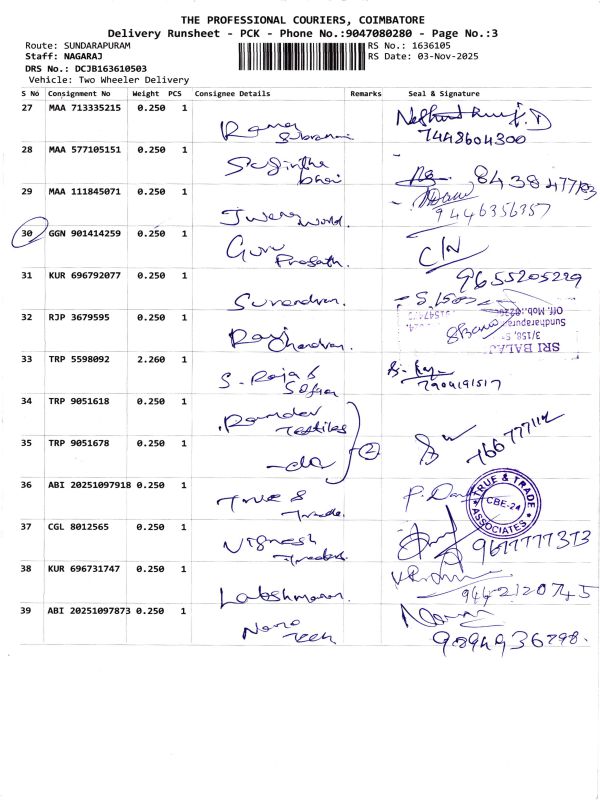 THE PROFESSIONAL COURIERS, COIMBATORE
Delivery Runsheet - PCK - Phone No.:9047080280 - Page No.:3
Route: SUNDARAPURAM RS No.: 1636105
Staff: NAGARAJ RS Date: 03-Nov-2025
DRS No.: DCJB163610503
Vehicle: Two Wheeler Delivery
S No Consignment No Weight PCS Consignee Details Remarks Seal & Signature
27 MAA 713335215 0.250 1
7448604300
28 MAA 577105151 0.250 1
29 MAA 111845071 0.250 1
9446356357
30 GGN 901414259 0.250 1
Guru Prasath. C/N
9655205229
31 KUR 696792077 0.250 1
Surendran.
32 RJP 3679595 0.250 1
Ravi Chandran
SRI BALAJ
3/158, S
Sundharapura
Off. Mob.:
33 TRP 5598092 2.260 1
S. Raja &
34 TRP 9051618 0.250 1
Ramdev Textiles
2
35 TRP 9051678 0.250 1
36 ABI 20251097918 0.250 1
True & Trade.
TRUE & TRADE ASSOCIATES CBE-24
37 CGL 8012565 0.250 1
Vignesh Traders
9677777373
38 KUR 696731747 0.250 1
Lakshmanan.
9442120745
39 ABI 20251097873 0.250 1
Nano Tech
9894936298.